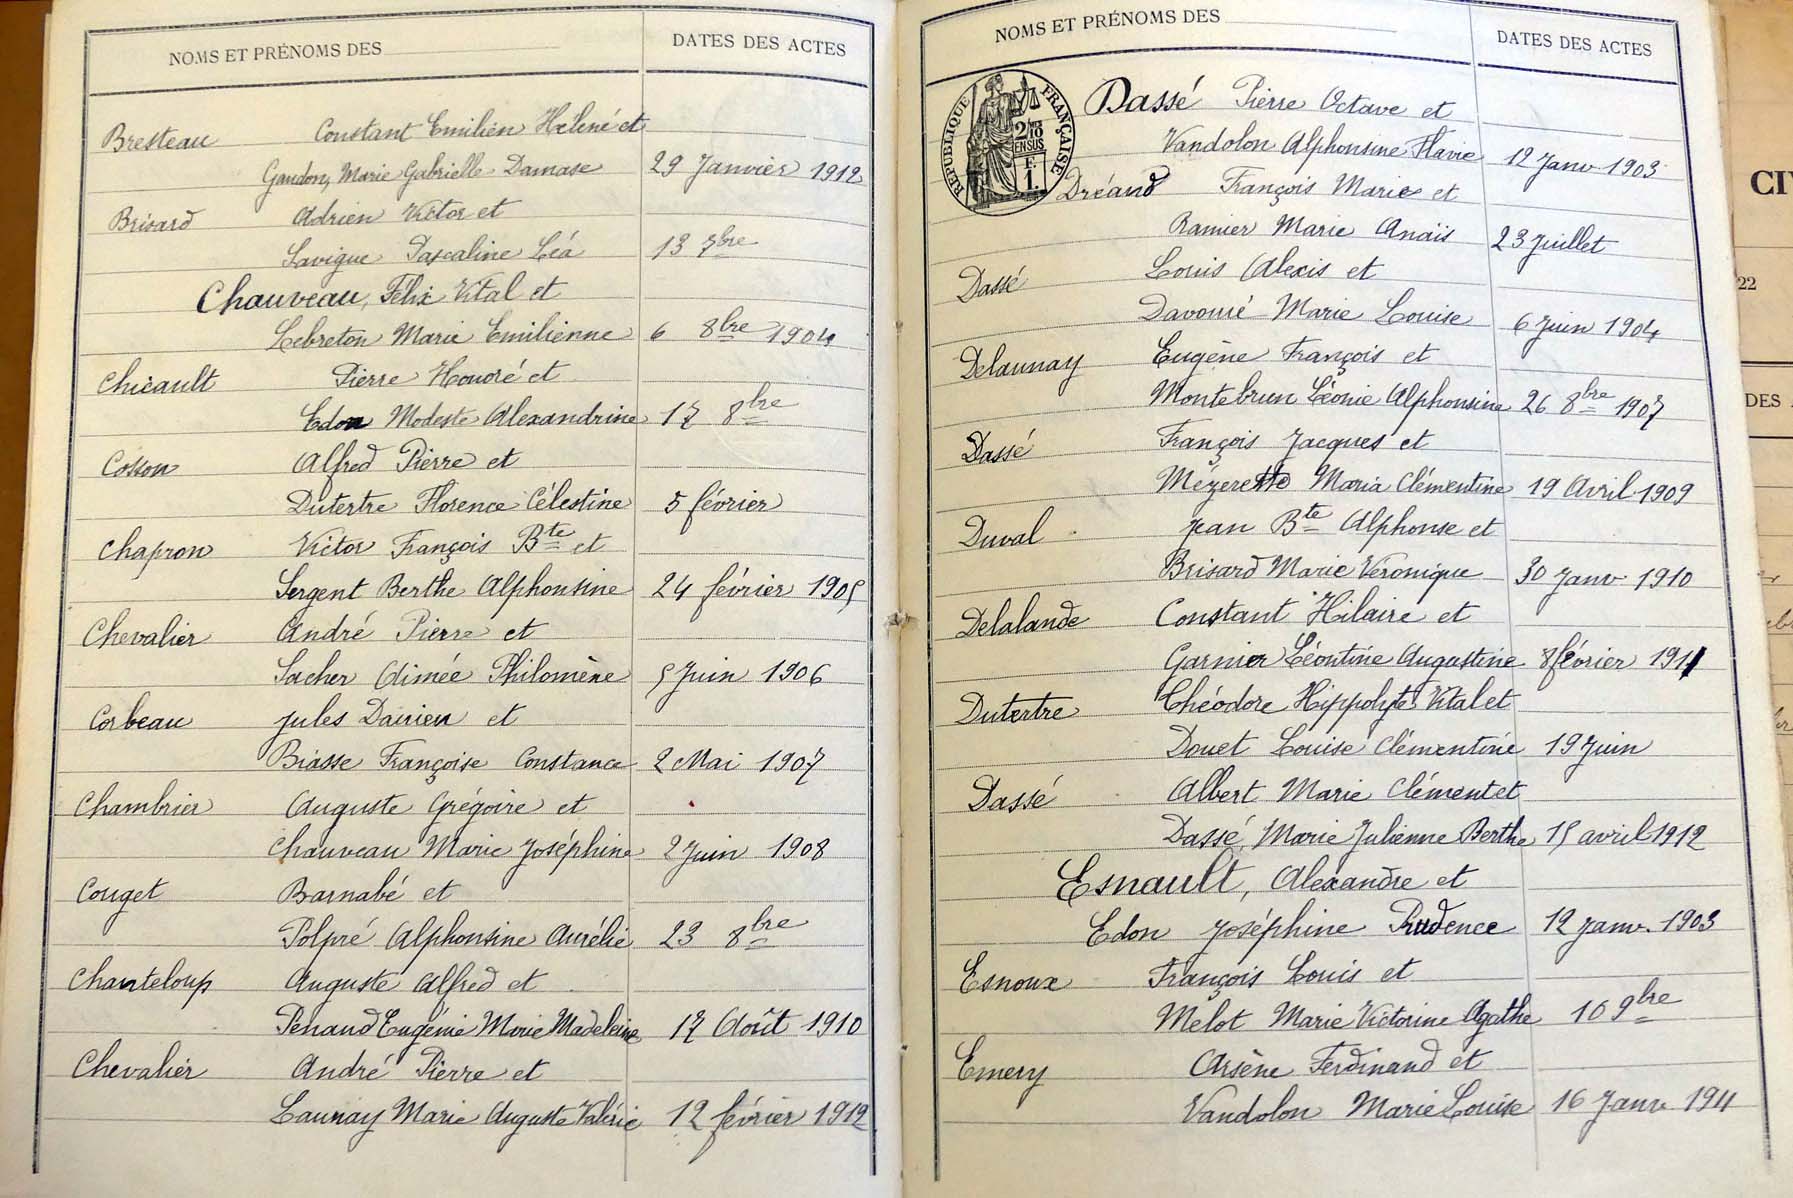 NOMS ET PRÉNOMS DES
DATES DES ACTES
Bresteau Constant Emilien Helené et
Gaudon, Marie Gabrielle Damase 29 Janvier 1912
Brisard Adrien Victor et
Lavigue Pascaline Léa 13 7bre
Chauveau, Félix Vital et
Lebreton Marie Emilienne 6 8bre 1904
Chicault Pierre Honoré et
Edon Modeste Alexandrine 17 8bre
Cosson Alfred Pierre et
Dutertre Florence Célestine 5 février
Chapron Victor François Bte et
Sergent Berthe Alphonsine 24 février 1905
Chevalier André Pierre et
Sacher Aimée Philomène 5 Juin 1906
Corbeau Jules Damien et
Biasse Françoise Constance 2 Mai 1907
Chambrier Auguste Grégoire et
Chauveau Marie Joséphine 2 Juin 1908
Couget Barnabé et
Polpré Alphonsine Aurélie 23 8bre
Chanteloup Auguste Alfred et
Penaud Eugénie Marie Madeleine 17 Août 1910
Chevalier André Pierre et
Launay Marie Auguste Valérie 12 février 1912
NOMS ET PRÉNOMS DES
DATES DES ACTES
RÉPUBLIQUE FRANÇAISE
2/10
EN SUS
F.
1.
Dassé Pierre Octave et
Vandolon Alphonsine Flavie 12 Janv 1903
Dréand François Marie et
Ramier Marie Anaïs 23 Juillet
Dassé Louis Alexis et
Davoué Marie Louise 6 Juin 1904
Delaunay Eugène François et
Montebrun Léonie Alphonsine 26 8bre 1907
Dassé François Jacques et
Mézerette Maria Clémentine 19 Avril 1909
Duval Jean Bte Alphonse et
Brisard Marie Veronique 30 Janv 1910
Delalande Constant Hilaire et
Garnier Léontine Augustine 8 février 1911
Dutertre Théodore Hippolyte Vital et
Douet Louise Clémentine 19 Juin
Dassé Albert Marie Clément et
Dassé, Marie Julienne Berthe 15 avril 1912
Esnault, Alexandre et
Edon Joséphine Prudence 12 Janv. 1903
Esnoux François Louis et
Melot Marie Victorine Agathe 10 9bre
Emery Arsène Ferdinand et
Vandolon Marie Louise 16 Janv 1911
CI
22
DES